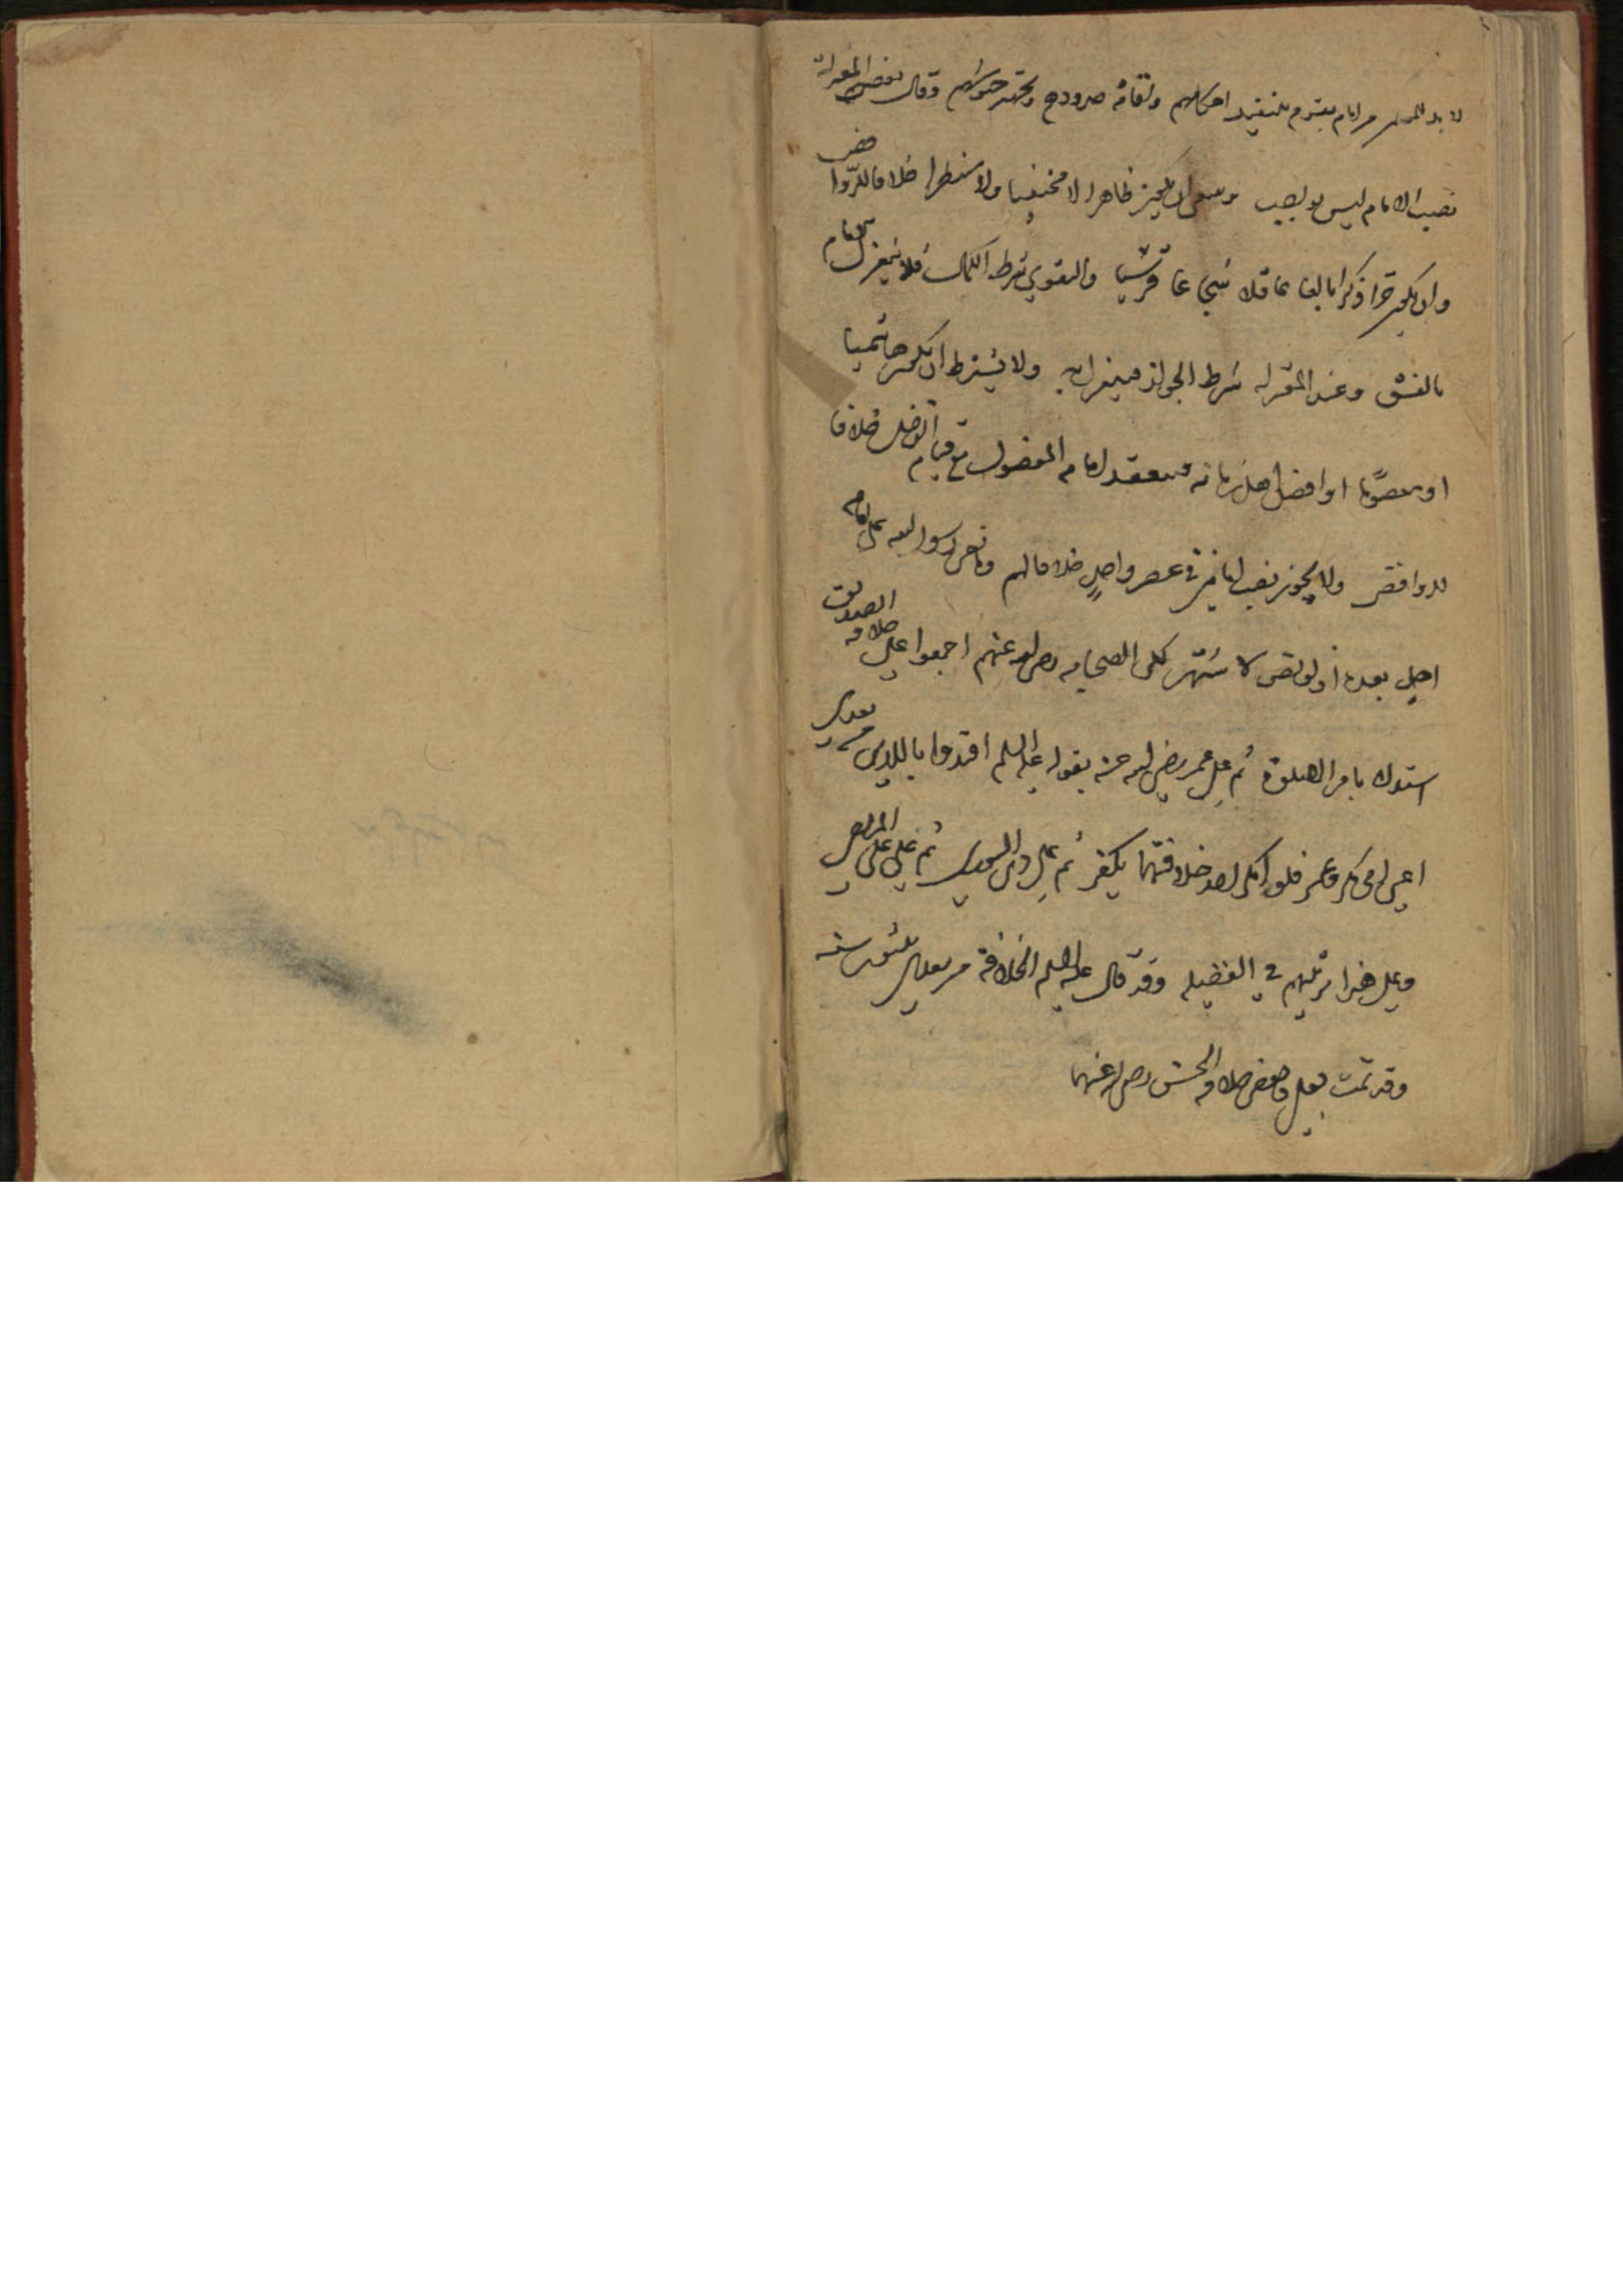 لا بد للمسلمين من امام يقوم بتنفيذ احكامهم واقامة حدودهم وتجهيز جيوشهم وقال بعض المعتزلة
نصب الامام ليس بواجب وينبغي ان يكون ظاهرا لا مختفيا ولا منتظرا خلافا للروافض
وان يكون حرا ذكرا بالغا عاقلا شجاعا قرشيا والتقوي شرط الكمال فلا ينعزل الامام
بالفسق وعند المعتزلة شرط الجواز فينعزل به ولا يشترط ان يكون هاشميا
او معصوما او افضل اهل زمانه فينعقد امامة المفضول مع قيام الفضل خلافا
للروافض ولا يجوز نصب امامين في عصر واحد خلافا لهم ولم ينص رسول الله على امامة
احد بعده اذ لو نص لاشتهر لكن الصحابة رضي الله عنهم اجمعوا على خلافة الصديق
استدلالا بامر الصلوة ثم على عمر رضي الله عنه بقوله عليه السلم اقتدوا باللذين من بعدي
اعني ابي بكر وعمر فلو انكر احد خلافتهما يكفر ثم على ذي النورين ثم على علي المرتضى
وعلى هذا ترتيبهم في الفضيلة وقد قال عليه السلم الخلافة من بعدي ثلثون سنة
وقد تمت بعلي خلافة الحسن رضي الله عنهما